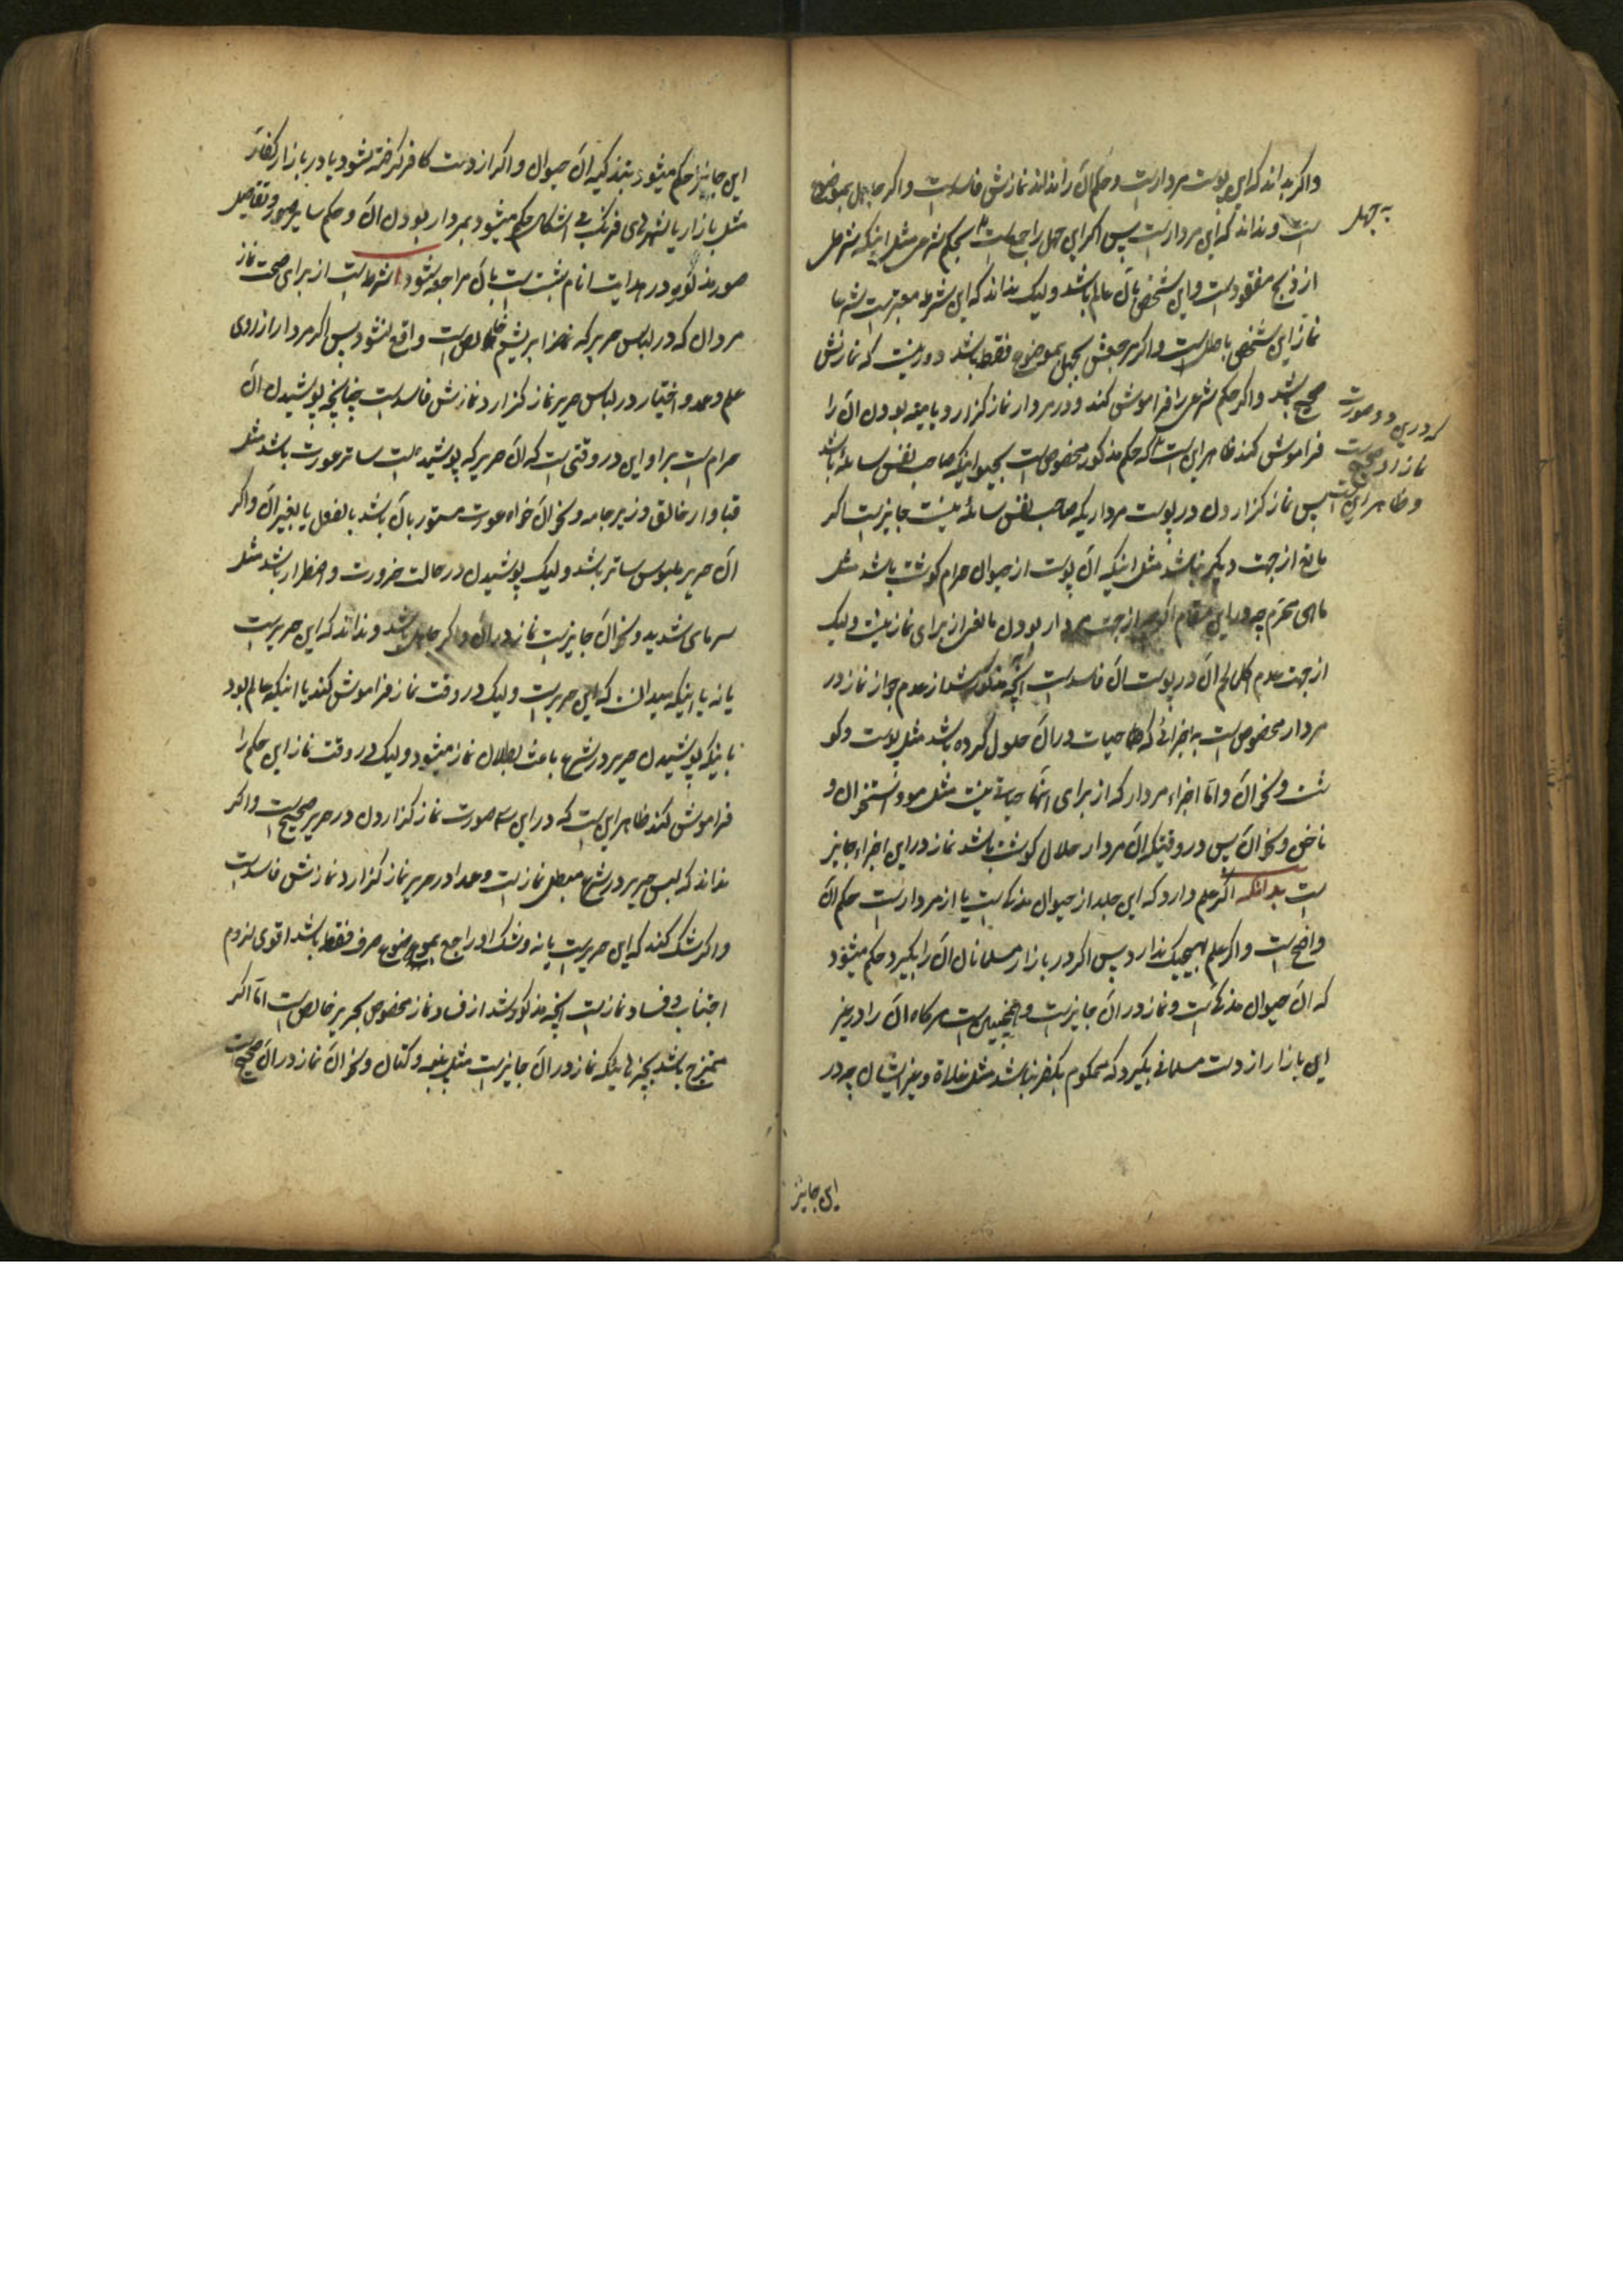 واکر بداند که این پوست مردارست و حکم آن را نداند نمازش فاسدست واکر جاهل بموضوع
ست و نداند که این مردارست پس اکر این جهل راجع است بحکم شرعی مثل اینکه شرطی
از ذبح مفقودست و این شخص بآن عالم باشد ولیک نداند که این شرط معتبرست شرعا
نماز این شخص باطل است واکر مرجعش بجهل بموضوع فقط باشد دور نیست که نمازش
صحیح باشد واکر حکم شرعی را فراموش کند و در مردار نماز کزارد یا میته بودن آن را
فراموش کند ظاهر این است که حکم مذکور مخصوص است بحیوانیکه صاحب نفس سائله باشد
پس نماز کزاردن در پوست مرداریکه صاحب نفس سائله نیست جایزست اکر
مانع از جهت دیکر نباشد مثل اینکه آن پوست از حیوان حرام کوشت باشد مثل
ماهی محرم چه در این مقام اکرچه از جهت مردار بودن مانعی از برای نماز نیست ولیک
از جهت عدم اکل لحم آن در پوست آن فاسدست آنچه مذکور شد از عدم جواز نماز در
مردار مخصوص است به اجزائی که حیات در آن حلول کرده باشد مثل پوست وکو
شت ونحو آن واما اجزاء مردار که از برای آنها حیاتی نیست مثل مو و استخوان و
ناخن ونحو آن پس در وقتیکه آن مردار حلال کوشت باشد نماز در این اجزاء جایز
ست بدانکه اکر علم دارد که این جلد از حیوان مذکاست یا از مردارست حکم آن
واضح ست واکر علم بهیچیک ندارد پس اکر در بازار مسلمانان آن را بکیرد حکم میشود
که آن حیوان مذکاست ونماز در آن جایزست وهمچنین است هرکاه آن را در غیر
این بازار از دست مسلمانی بکیرد که محکوم بکفر نباشد مثل غلاة وغیر ایشان چه در
به جهل
که در این دو صورت
نماز او صحیح ست
وظاهر این ست
این جایز
این جایز حکم میشود بتذکیه آن حیوان واکر از دست کافر کرفته شود یا در بازار کفار
مثل بازار یا شهرهای فرنک بی اشکال حکم میشود بمردار بودن آن وحکم سایر صور وتفاصیل
صور مذکوره در هدایت انام ثبت ست بآن مراجعه شود شرط است از برای صحت نماز
مردان که در لباس حریر که از ابریشم خالص است واقع نشود پس اکر مردار از روی
علم وعمد واختیار در لباس حریر نماز کزارد نمازش فاسدست چنانچه پوشیدن آن
حرام ست بر او این در وقتی است که آن حریر که پوشیده است ساتر عورت باشد مثل
قبا وارخالق وزیر جامه ونحو آن خواه عورت مستور بآن باشد بالفعل یا بغیر آن واکر
آن حریر ملبوس ساتر باشد ولیک پوشیدن در حالت ضرورت واضطرار باشد مثل
سرمای شدید ونحو آن جایزست نماز در آن واکر جاهل باشد ونداند که این حریرست
یا نه یا اینکه میدانست که این حریرست ولیک در وقت نماز فراموش کند یا اینکه عالم بود
باینکه پوشیدن حریر در شرع باعث بطلان نماز میشود ولیک در وقت نماز این حکم را
فراموش کند ظاهر این ست که در این سه صورت نماز کزاردن در حریر صحیح ست واکر
نداند که لبس حریر در شرع مبطل نمازست وعمدا در حریر نماز کزارد نمازش فاسدست
واکر شک کند که این حریرست یا نه وشک او راجع بموضوع صرف فقط باشد اقوی لزوم
اجتناب وفساد نمازست آنچه مذکور شد از فساد نماز مخصوص بحریر خالص ست اما اکر
ممتزج باشد بچیزهائیکه نماز در آن جایزست مثل پنبه وکتان ونحو آن نماز در آن صحیح ست